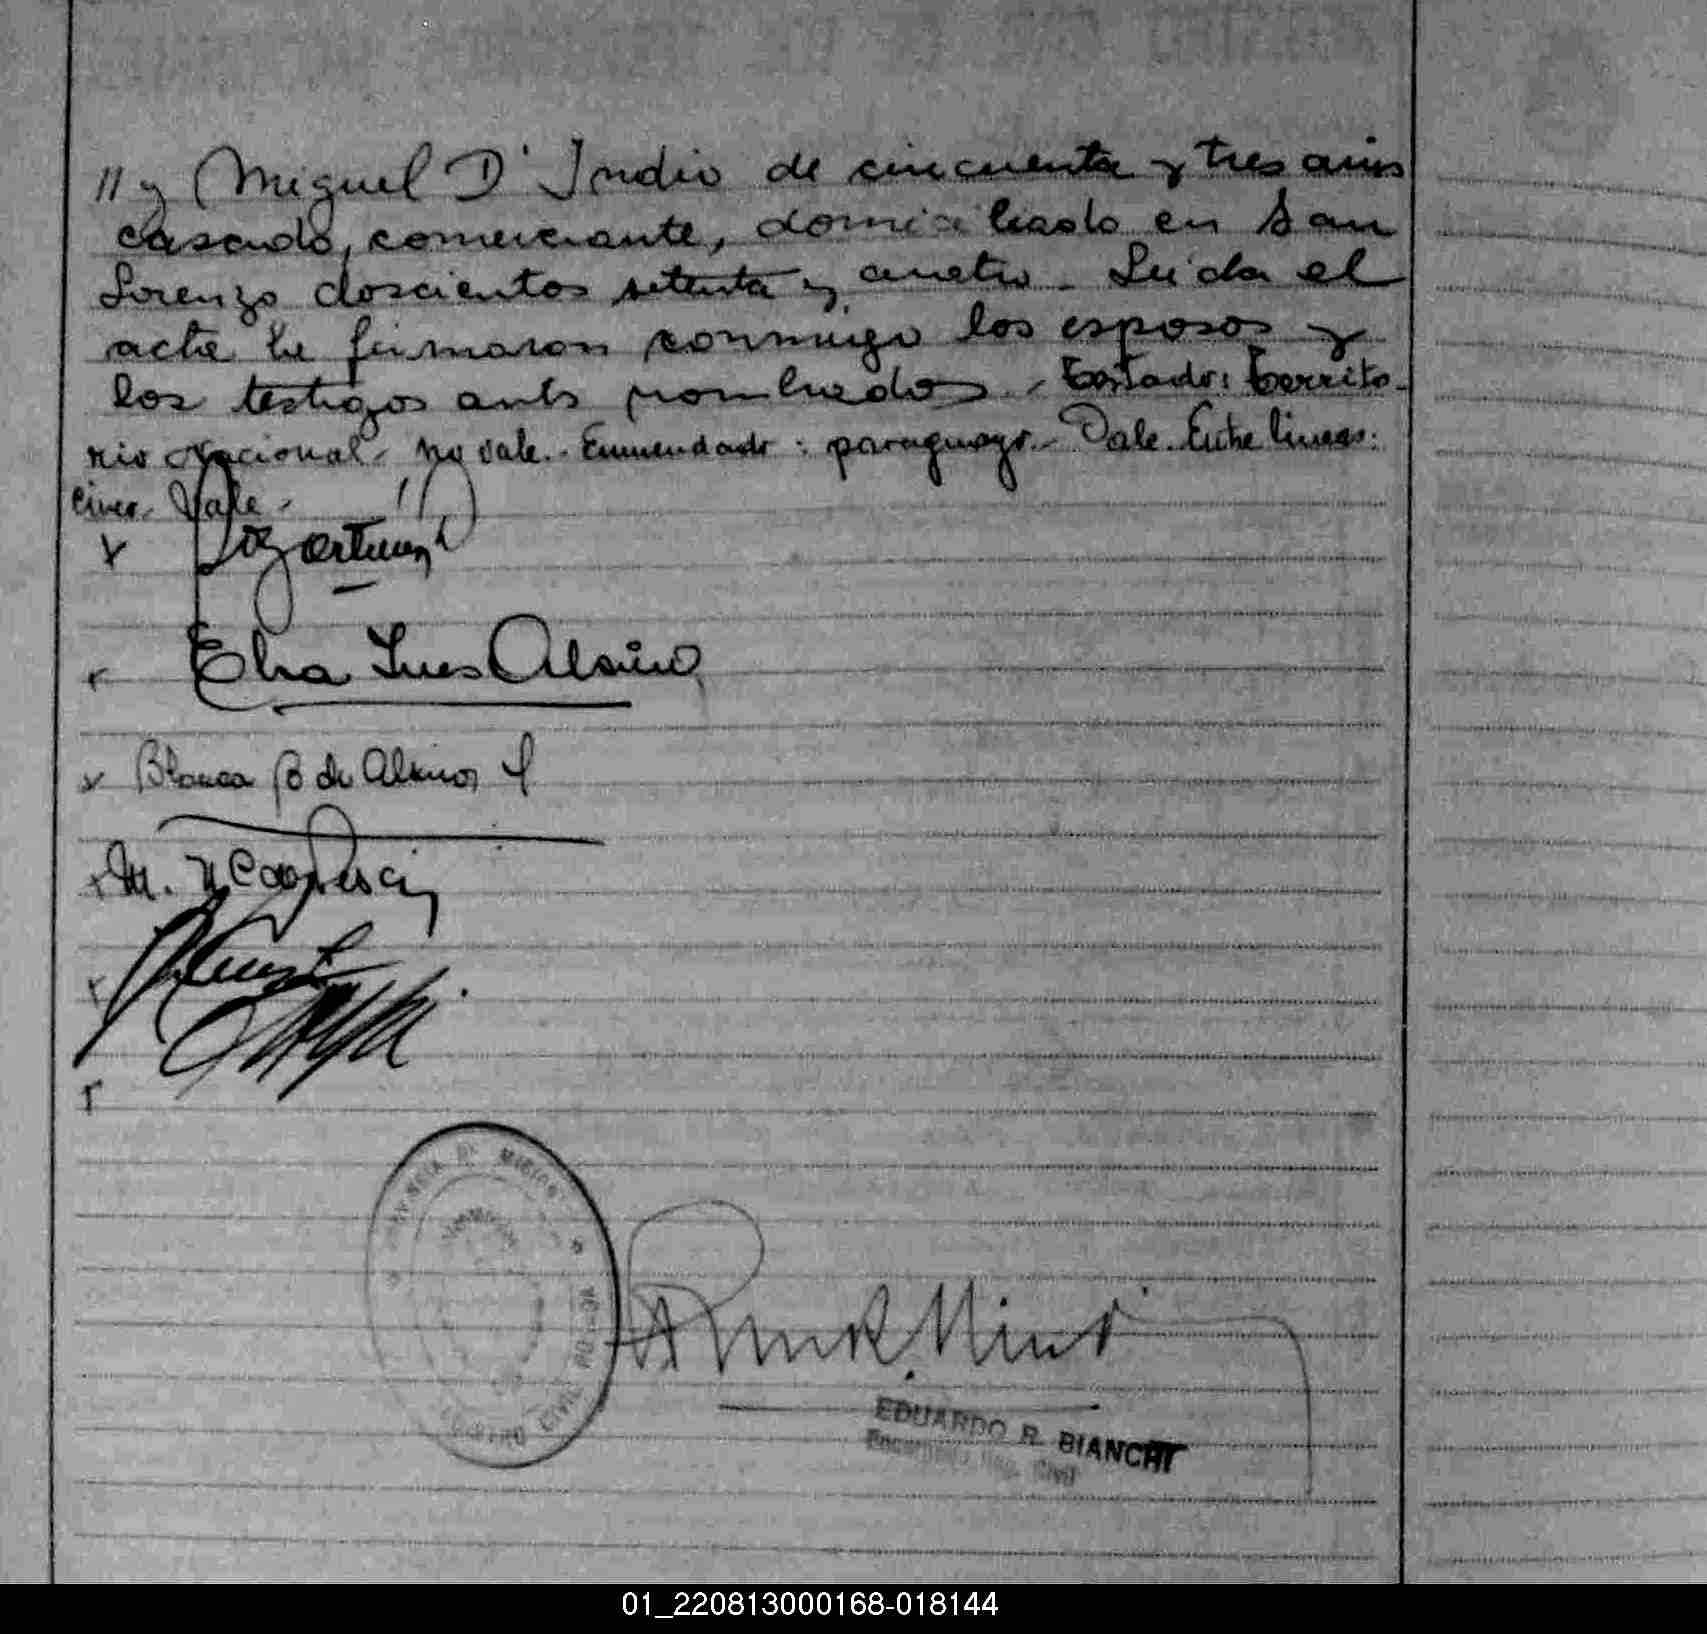 // y Miguel D' Indio de cincuenta y tres años
casado, comerciante, domiciliado en San
Lorenzo doscientos setenta y cuatro - Leida el
acta la firmaron conmigo los esposos y
los testigos antes nombrados.- Testado: Territo-
rio Nacional.- No vale.- Enmendado: paraguayo.- Vale. Entre lineas:
Vale.-
Elsa Ines
Blanca B de
M.
PROVINCIA DE MISIONES
REGISTRO CIVIL
EDUARDO R. BIANCHI
Encargado Reg. Civil
01_220813000168-018144